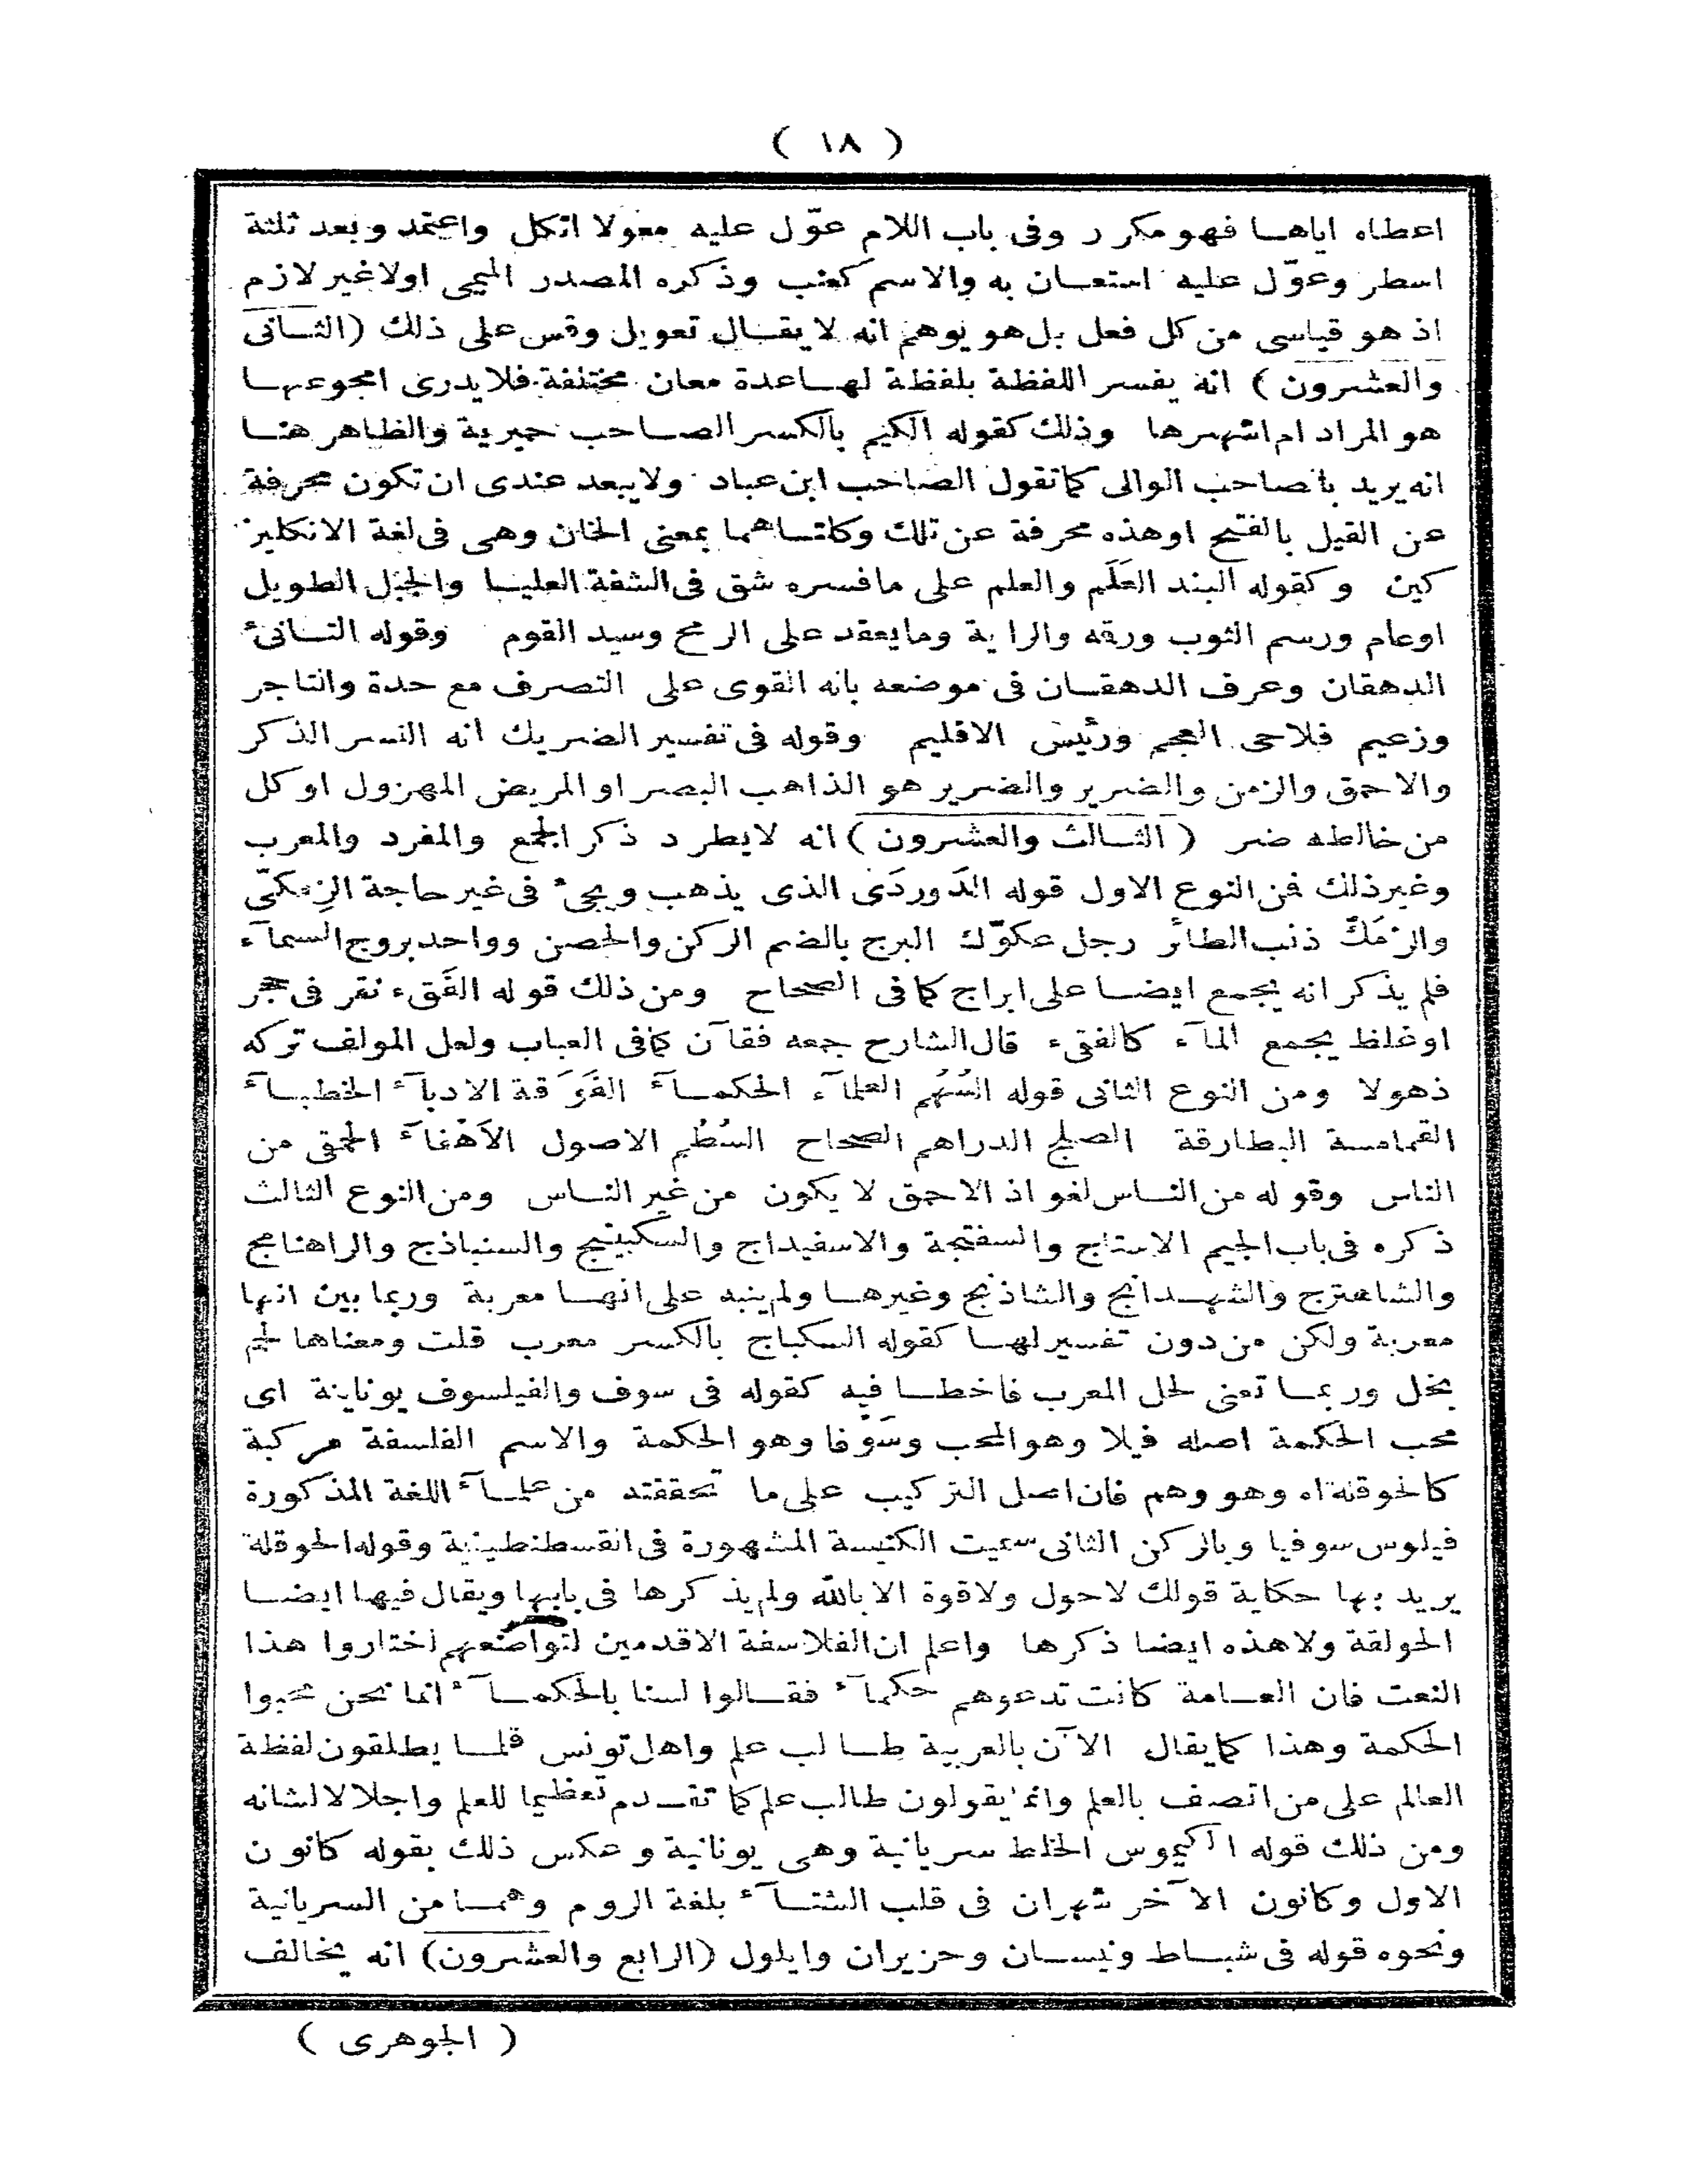 ( ١٨ )
اعطاه اياها فهو مكرر وفى باب اللام عوّل عليه معولا اتكل واعتمد وبعد ثلثة
اسطر وعوّل عليه استعان به والاسم كعنب وذكره المصدر الميمى اولا غير لازم
اذ هو قياسى من كل فعل بل هو يوهم انه لا يقال تعويل وقس على ذلك (الثانى
والعشرون) انه يفسر اللفظة بلفظة لها عدة معان مختلفة فلا يدرى امجموعها
هو المراد ام اشهرها وذلك كقوله الكيح بالكسر الصاحب حميرية والظاهر هنا
انه يريد بالصاحب الوالى كما تقول الصاحب ابن عباد ولا يبعد عندى ان تكون محرفة
عن القيل بالفتح او هذه محرفة عن تلك وكلتاهما بمعنى الخان وهى فى لغة الانكليز
كين وكقوله البند العَلَم والعلم على ما فسره شق فى الشفة العليا والجبل الطويل
او عام ورسم الثوب ورقه والراية وما يعقد على الرمح وسيد القوم وقوله التانئ
الدهقان وعرف الدهقان فى موضعه بانه القوى على التصرف مع حدة والتاجر
وزعيم فلاحى العجم ورئيس الاقليم وقوله فى تفسير الضريك انه النسر الذكر
والاحمق والزمن والضرير والضرير هو الذاهب البصر او المريض المهزول او كل
من خالطه ضر (الثالث والعشرون) انه لا يطرد ذكر الجمع والمفرد والمعرب
وغير ذلك فمن النوع الاول قوله الدَوردَى الذى يذهب ويجئ فى غير حاجة الزِمكىّ
والزمَكّ ذنب الطائر رجل عكوّك البرج بالضم الركن والحصن وواحد بروج السمآء
فلم يذكر انه يجمع ايضا على ابراج كما فى الصحاح ومن ذلك قوله الفَقء نقر فى حجر
او غلظ يجمع المآء كالفقىء قال الشارح جمعه فقآن كما فى العباب ولعل المولف تركه
ذهولا ومن النوع الثانى قوله السُهُم العقلآء الحكمآء الفَوَقة الادبآء الخطبآء
القمامسة البطارقة الصلج الدراهم الصحاح السُطُم الاصول الاَهْفآء الحمقى من
الناس وقوله من الناس لغو اذ الاحمق لا يكون من غير الناس ومن النوع الثالث
ذكره فى باب الجيم الاستاج والسفتجة والاسفيداج والسكبينج والسنباذج والراهنامج
والشاهترج والشهدانج والشاذنج وغيرها ولم ينبه على انها معربة وربما بين انها
معربة ولكن من دون تفسير لها كقوله السكباج بالكسر معرب قلت ومعناها لحم
بخل وربما تعنى لحل المعرب فاخطا فيه كقوله فى سوف والفيلسوف يونانية اى
محب الحكمة اصله فيلا وهو المحب وسَوْفا وهو الحكمة والاسم الفلسفة مركبة
كالحوقلة اه وهو وهم فان اصل التركيب على ما تحققته من علمآء اللغة المذكورة
فيلوس سوفيا وبالركن الثانى سميت الكنيسة المشهورة فى القسطنطينية وقوله الحوقلة
يريد بها حكاية قولك لا حول ولا قوة الا بالله ولم يذكرها فى بابها ويقال فيها ايضا
الحولقة ولا هذه ايضا ذكرها واعلم ان الفلاسفة الاقدمين لتواضعهم اختاروا هذا
النعت فان العامة كانت تدعوهم حكمآء فقالوا لسنا بالحكمآء انما نحن محبوا
الحكمة وهذا كما يقال الآن بالعربية طالب علم واهل تونس قلما يطلقون لفظة
العالم على من اتصف بالعلم وانما يقولون طالب علم كما تقدم تعظيما للعلم واجلالا لشانه
ومن ذلك قوله الكيموس الخلط سريانية وهى يونانية وعكس ذلك بقوله كانون
الاول وكانون الآخر شهران فى قلب الشتآء بلغة الروم وهما من السريانية
ونحوه قوله فى شباط ونيسان وحزيران وايلول (الرابع والعشرون) انه يخالف
( الجوهرى )